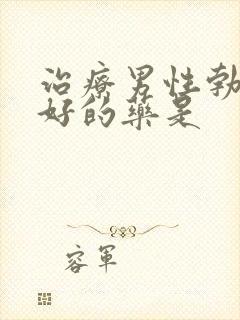 治療男性勃
好的藥是
容軍